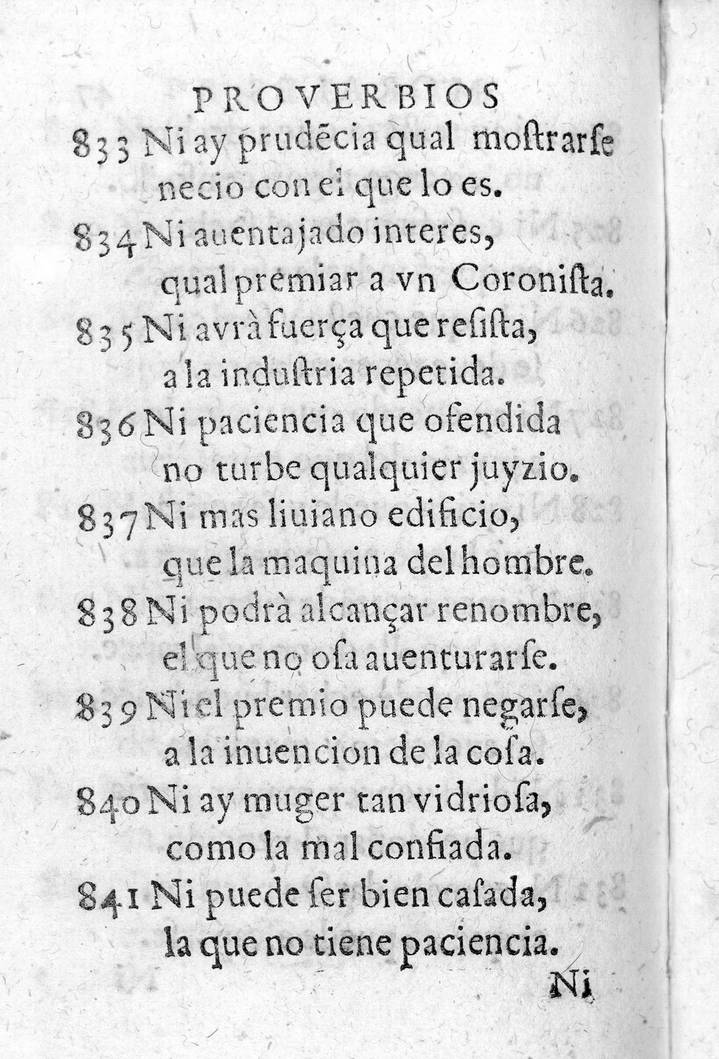 PROVERBIOS
833 Ni ay prudẽcia qual moſtrarſe
necio con el que lo es.
834 Ni auentajado interes,
qual premiar a vn Coroniſta.
835 Ni avrà fuerça que reſiſta,
a la induſtria repetida.
836 Ni paciencia que ofendida
no turbe qualquier juyzio.
837 Ni mas liuiano edificio,
que la maquina del hombre.
838 Ni podrà alcançar renombre,
el que no oſa auenturarſe.
839 Ni el premio puede negarſe,
a la inuencion de la coſa.
840 Ni ay muger tan vidrioſa,
como la mal confiada.
841 Ni puede ſer bien caſada,
la que no tiene paciencia.
Ni